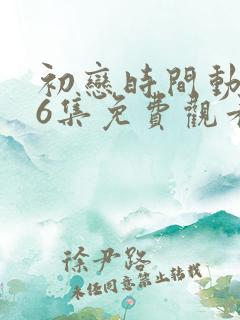 初戀時間動
6集免費觀
徐尹路
未经同意禁止转载